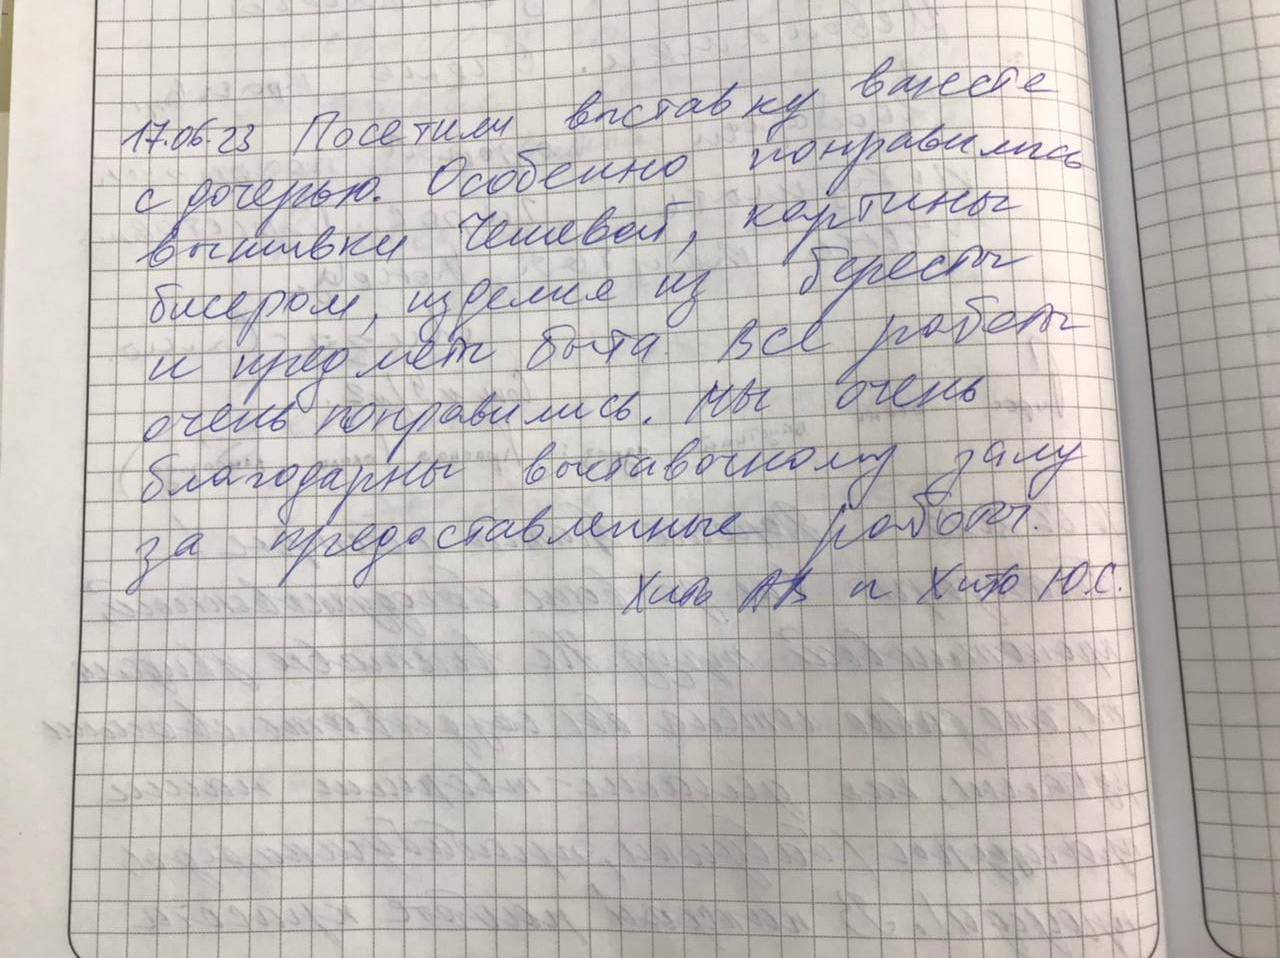 17.06.23 Посетили выставку вместе
с дочерью. Особенно понравились
вышивки Чешевой, картины
бисером, изделия из бересты
и предметы быта. Все работы
очень понравились. Мы очень
благодарны выставочному залу
за предоставленные работы.
АВ и Ю.С.